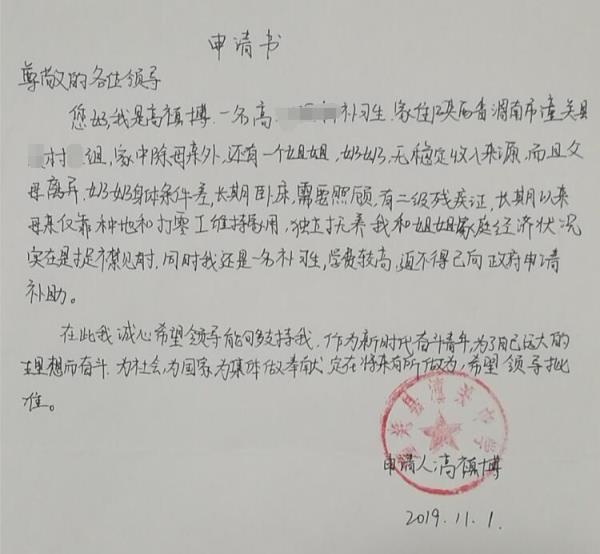 申请书
尊敬的各位领导
您好,我是高祺博,一名高 补习生,家住陕西省渭南市潼关县
村 组,家中除母亲外,还有一个姐姐,奶奶,无稳定收入来源,而且父
母离异,奶奶身体条件差,长期卧床,需要照顾,有二级残疾证,长期以来
母亲仅靠种地和打零工维持家用,独立抚养我和姐姐家庭经济状况
实在是捉襟见肘,同时我还是一名补习生,学费较高,迫不得已向政府申请
补助。
在此我诚心希望领导能够支持我,作为新时代奋斗青年,为了自己远大的
理想而奋斗,为社会,为国家为集体做奉献,定在将来有所做为,希望领导批
准。
关县潼关中学
申请人:高祺博
2019.11.1.